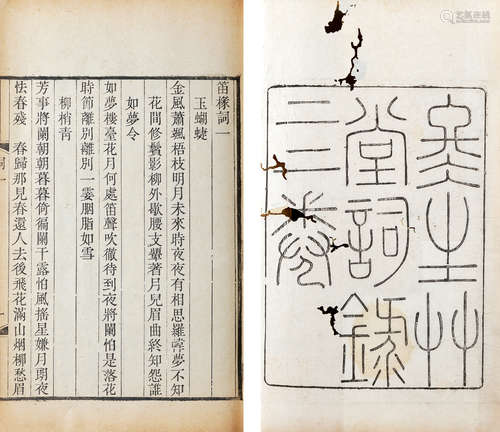 生艸
堂詞錄
卷
笛椽詞一
玉蝴蝶
金風蕭颯梧枝明月未來時夜夜有相思羅幃夢不知
花間修鬢影柳外腰顰著月兒眉曲終知怨誰
如夢令
如夢樓臺花月何處笛聲吹徹待到夜將闌怕是落花
時節離別離別一霎胭脂如雪
柳梢青
芳事將闌朝朝暮暮倚徧闌干露怕風搖星嫌月夜
怯春殘　春歸那見春還人去後飛花滿山烟柳愁眉